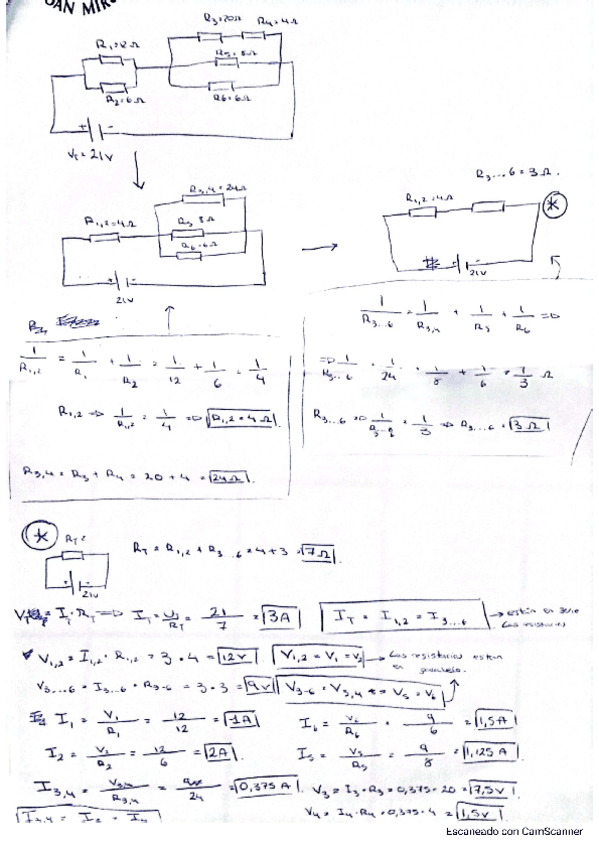 OAN MIR
R₃=20Ω R₄=4Ω
R₁=12Ω
R₅=8Ω
R₂=6Ω
R₆=6Ω
+ -
V_T = 21V
R₃...₆ = 3Ω.
R₃,₄=24Ω
R₁,₂=4Ω
R₁,₂=4Ω
R₅ 8Ω
R₆=6Ω
21V
21V
1/R₃...₆ = 1/R₃,₄ + 1/R₅ + 1/R₆ =>
1/R₁,₂ = 1/R₁ + 1/R₂ = 1/12 + 1/6 = 1/4
=> 1/R₃...₆ = 1/24 + 1/8 + 1/6 = 1/3 Ω
R₁,₂ => 1/R₁,₂ = 1/4 => R₁,₂ = 4Ω.
R₃...₆ => 1/R₃₋₆ = 1/3 => R₃...₆ = 3Ω.
R₃,₄ = R₃ + R₄ = 20 + 4 = 24Ω.
*
R_T =
21V
R_T = R₁,₂ + R₃...₆ = 4+3 = 7Ω.
V_T = I_T · R_T => I_T = V_T/R_T = 21/7 = 3A
I_T = I₁,₂ = I₃...₆ → están en serie las resistencias
V₁,₂ = I₁,₂ · R₁,₂ = 3 · 4 = 12V. V₁,₂ = V₁ = V₂ → Las resistencias están en paralelo.
V₃...₆ = I₃...₆ · R₃₋₆ = 3·3 = 9V V₃₋₆ = V₃,₄ = V₅ = V₆
I₁ = V₁/R₁ = 12/12 = 1A. I₆ = V₆/R₆ = 9/6 = 1,5A.
I₂ = V₂/R₂ = 12/6 = 2A. I₅ = V₅/R₅ = 9/8 = 1,125A.
I₃,₄ = V₃,₄/R₃,₄ = 9/24 = 0,375A. V₃ = I₃·R₃ = 0,375·20 = 7,5V.
V₄ = I₄·R₄ = 0,375·4 = 1,5V.
I₃,₄ = I₃ = I₄
Escaneado con CamScanner